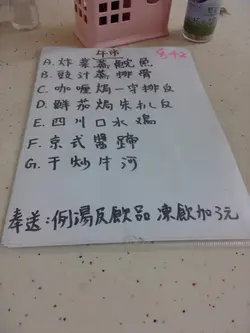 午市 $42
A. 炸薯蒸鯇魚
B. 豉汁蒸排骨
C. 咖喱焗一字排反
D. 鮮茄焗朱扒反
E. 四川口水鸡
F. 京式醬蹄
G. 干炒牛河
奉送:例湯反飲品 凍飲加3元